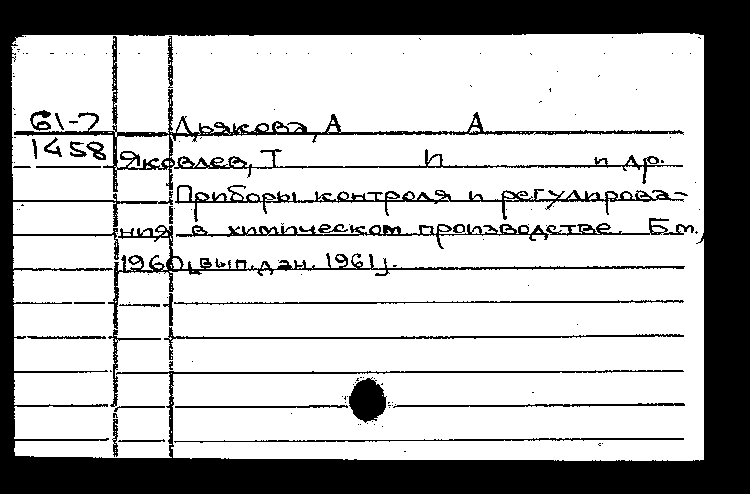 61-7 Дьякова, А А
1458 Яковлев, Т И и др.
Приборы контроля и регулирова-
ния в химическом производстве. Б.м.,
1960 [вып. дан. 1961].